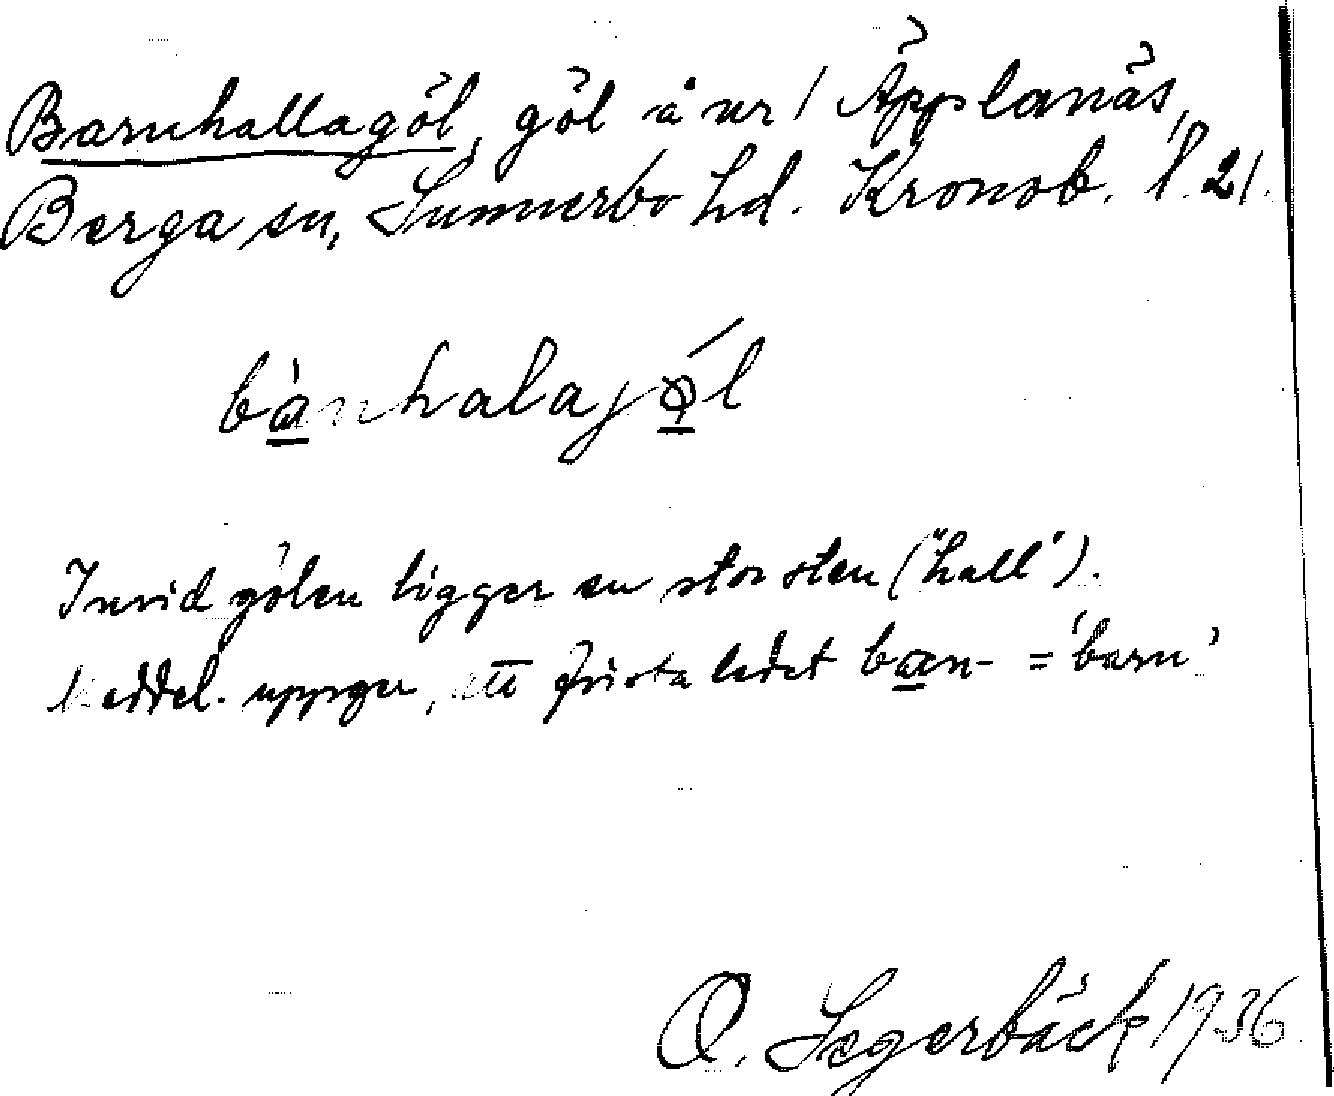 Barnhallagöl, göl å nr 1 Äpplanäs,
Berga sn, Sunnerbo hd. Kronob. l. 21.
bànhalajǿl
Invid gölen ligger en stor sten ("hall").
Meddel. uppger, att första ledet ban- = 'barn'
O. Segerbäck 1936